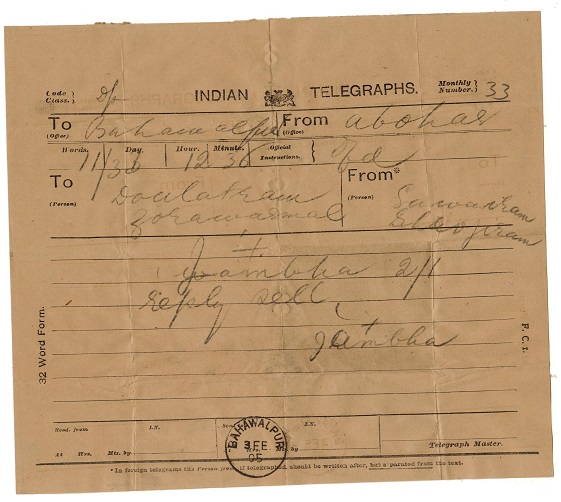 Code Class. } D/ INDIAN TELEGRAPHS. Monthly Number. } 33
To (Office) Bahawalpur From (Office) Abohar
Words. Day. Hour. Minute. Official Instructions. {
11/3 12 36
To (Person) Doulatram From* (Person) Sawanram
Zorawarmal
Jambha 2/1
Reply sell
Jambha
32 Word Form.
P. C. I.
Recd. from I.N. I.N.
At Hrs. Mts. by Mts. by Telegraph Master.
BAHAWALPUR
3 FE
05
*In foreign telegrams the Person from, if telegraphed, should be written after, but separated from the text.